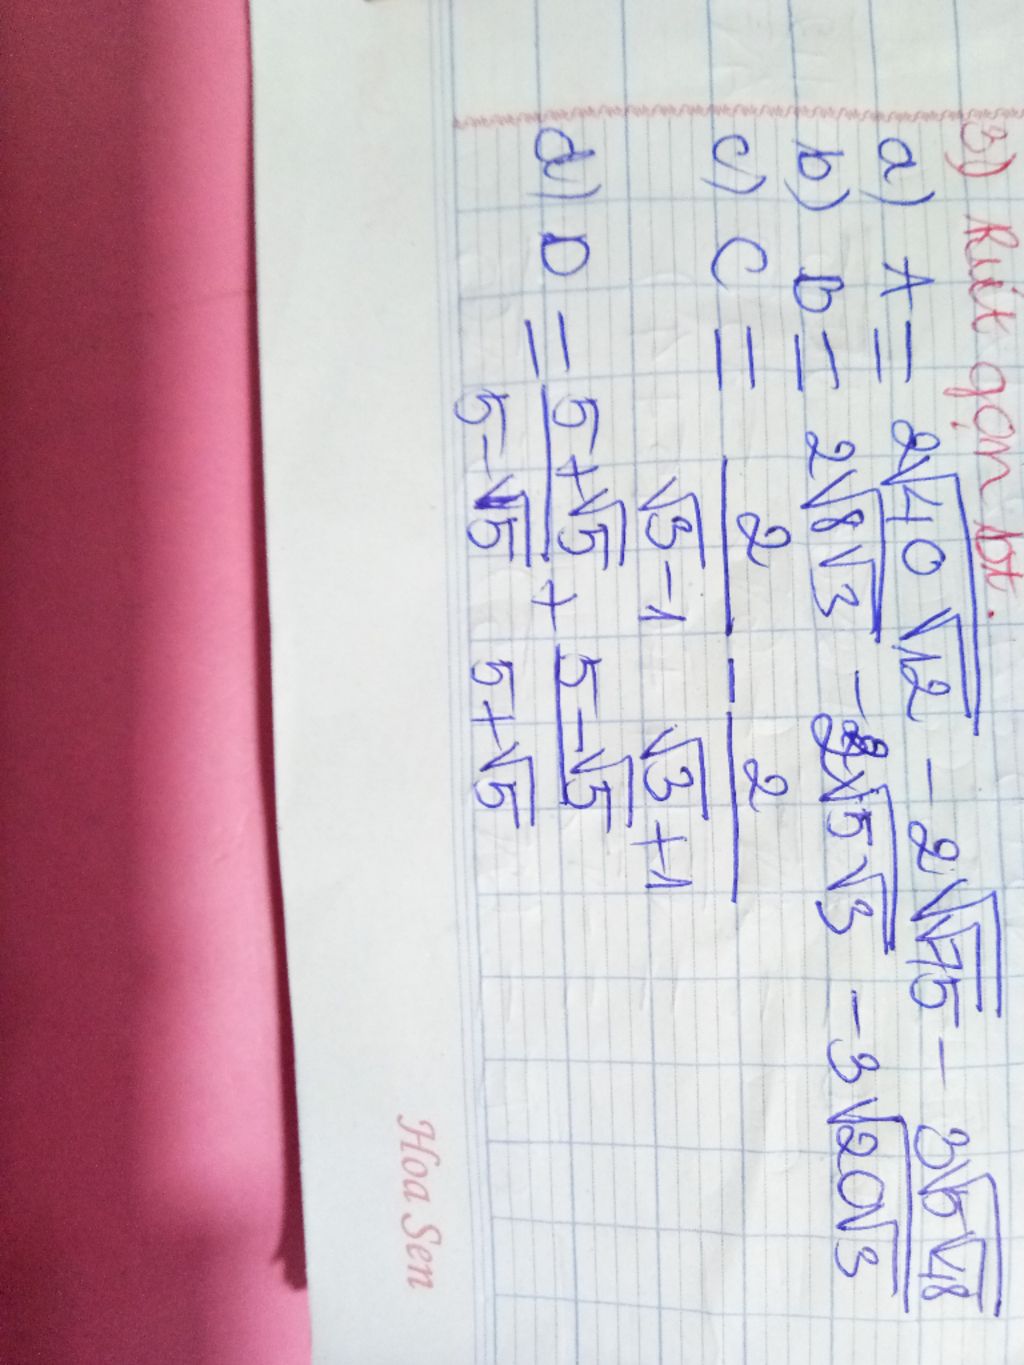 3) Rút gọn bt.
a) A = 2√(40√12) - 2√(√75) - 3√(5√48)
b) b = 2√(8√3) - 2√(5√3) - 3√(20√3)
c) C = 2/(√3-1) - 2/(√3+1)
d) D = (5+√5)/(5-√5) + (5-√5)/(5+√5)
Hoa Sen